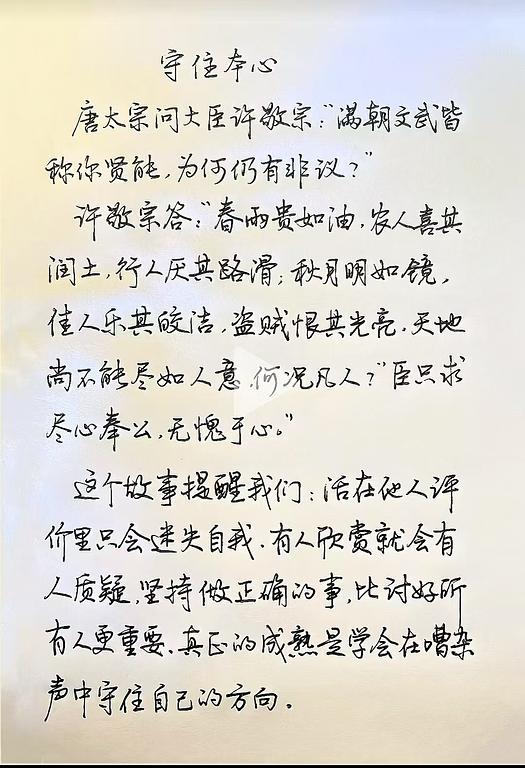 守住本心
唐太宗问大臣许敬宗:“满朝文武皆
称你贤能,为何仍有非议?”
许敬宗答:“春雨贵如油,农人喜其
润土,行人厌其路滑;秋月明如镜,
佳人乐其皎洁,盗贼恨其光亮.天地
尚不能尽如人意,何况凡人?”臣只求
尽心奉公,无愧于心。”
这个故事提醒我们:活在他人评
价里只会迷失自我.有人欣赏就会有
人质疑,坚持做正确的事,比讨好所
有人更重要.真正的成熟是学会在嘈杂
声中守住自己的方向.